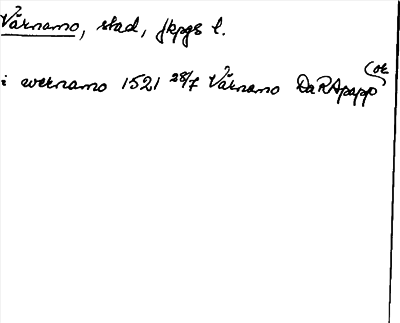 Värnamo, stad, Jkpgs l.
i wernamo 1521 28/7 Värnamo DaRApapp (or